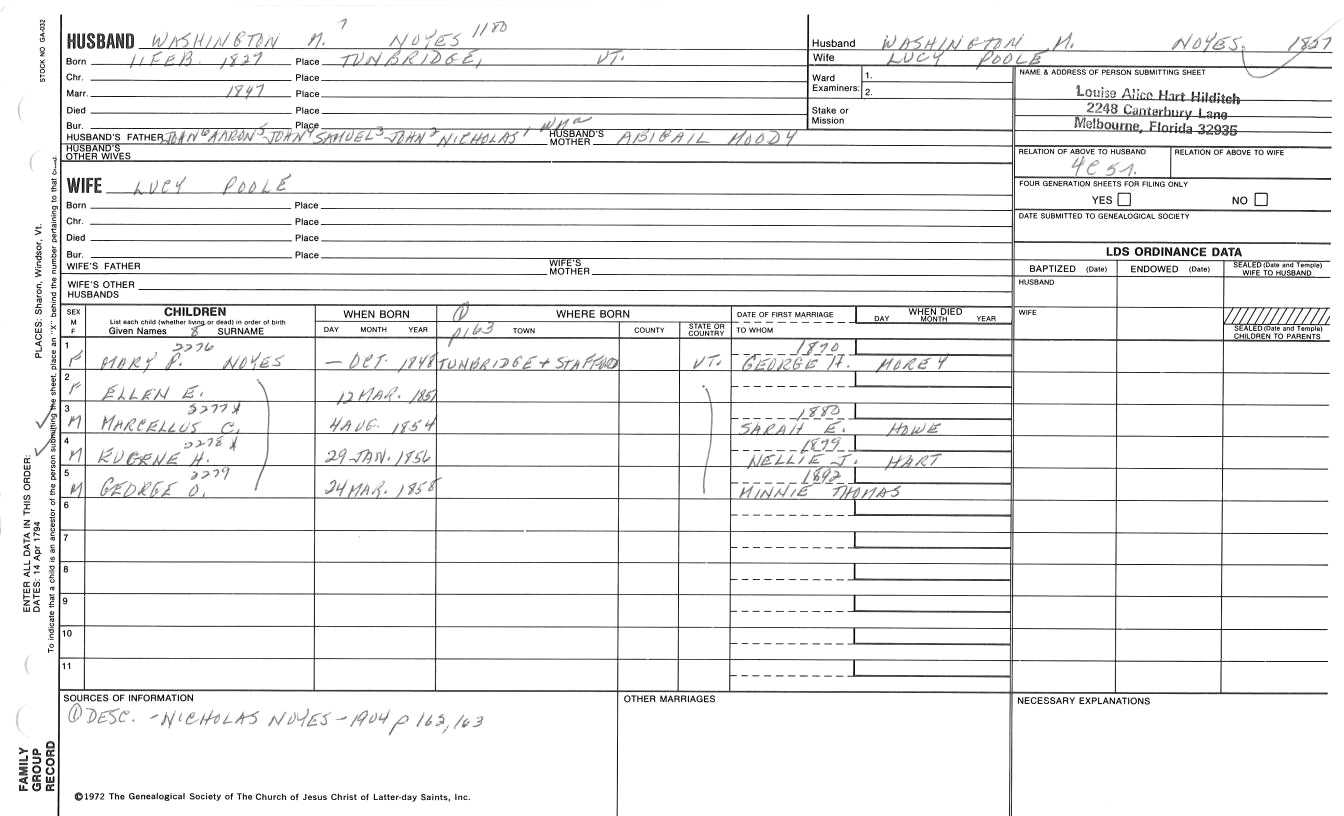 STOCK NO. GA-032
HUSBAND WASHINGTON M. 7 NOYES 1180
Born 11 FEB. 1827 Place TUNBRIDGE, VT.
Chr. Place
Marr. 1847 Place
Died Place
Bur. Place
HUSBAND'S FATHER JOHN 6 AARON 5 JOHN 4 SAMUEL 3 JOHN 2 NICHOLAS 1 Wma HUSBAND'S MOTHER ABIGAIL MOODY
HUSBAND'S OTHER WIVES
WIFE LUCY POOLE
Born Place
Chr. Place
Died Place
Bur. Place
WIFE'S FATHER WIFE'S MOTHER
WIFE'S OTHER HUSBANDS
Husband WASHINGTON M. NOYES 1857
Wife LUCY POOLE
Ward Examiners: 1. 2.
Stake or Mission
NAME & ADDRESS OF PERSON SUBMITTING SHEET
Louise Alice Hart Hilditch
2248 Canterbury Lane
Melbourne, Florida 32935
RELATION OF ABOVE TO HUSBAND RELATION OF ABOVE TO WIFE
4C 5
FOUR GENERATION SHEETS FOR FILING ONLY
YES NO
DATE SUBMITTED TO GENEALOGICAL SOCIETY
LDS ORDINANCE DATA
BAPTIZED (Date) ENDOWED (Date) SEALED (Date and Temple) WIFE TO HUSBAND
HUSBAND
WIFE
SEALED (Date and Temple) CHILDREN TO PARENTS
SEX M F
CHILDREN
List each child (whether living or dead) in order of birth
Given Names 8 SURNAME
WHEN BORN
DAY MONTH YEAR
① p163
WHERE BORN
TOWN COUNTY STATE OR COUNTRY
DATE OF FIRST MARRIAGE
TO WHOM
WHEN DIED
DAY MONTH YEAR
1 F 2276 MARY P. NOYES — OCT. 1848 TUNBRIDGE + STAFFORD VT. 1870 GEORGE H. MOREY
2 F ELLEN E. 12 MAR. 1851
3 M 2277 X MARCELLUS C. 4 AUG. 1854 1880 SARAH E. HOWE
4 M 2278 X EUGENE H. 29 JAN. 1856 1879 NELLIE J. HART
5 M 2279 GEORGE O. 24 MAR. 1858 1892 MINNIE THOMAS
6
7
8
9
10
11
SOURCES OF INFORMATION
① DESC. - NICHOLAS NOYES - 1904 p 162, 163
OTHER MARRIAGES
NECESSARY EXPLANATIONS
©1972 The Genealogical Society of The Church of Jesus Christ of Latter-day Saints, Inc.
ENTER ALL DATA IN THIS ORDER:
DATES: 14 Apr 1794
PLACES: Sharon, Windsor, Vt.
To indicate that a child is an ancestor of the person submitting the sheet, place an "X" behind the number pertaining to that
FAMILY GROUP RECORD